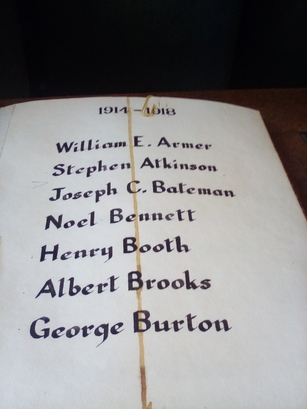 1914-1918
William E. Armer
Stephen Atkinson
Joseph C. Bateman
Noel Bennett
Henry Booth
Albert Brooks
George Burton